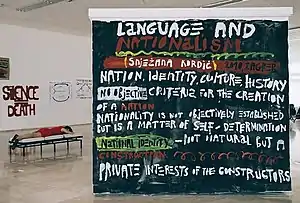 SCIENCE
=
DEATH
LANGUAGE AND
NATIONALISM
(SNJEŽANA KORDIĆ) 2010 ZAGREB
NATION, IDENTITY, CULTURE, HISTORY
NO OBJECTIVE CRITERIA FOR THE CREATION
OF A NATION
NATIONALITY IS NOT OBJECTIVELY ESTABLISHED
BUT IS A MATTER OF SELF-DETERMINATION
NATIONAL IDENTITY - NOT NATURAL BUT A
CONSTRUCTION
PRIVATE INTERESTS OF THE CONSTRUCTORS